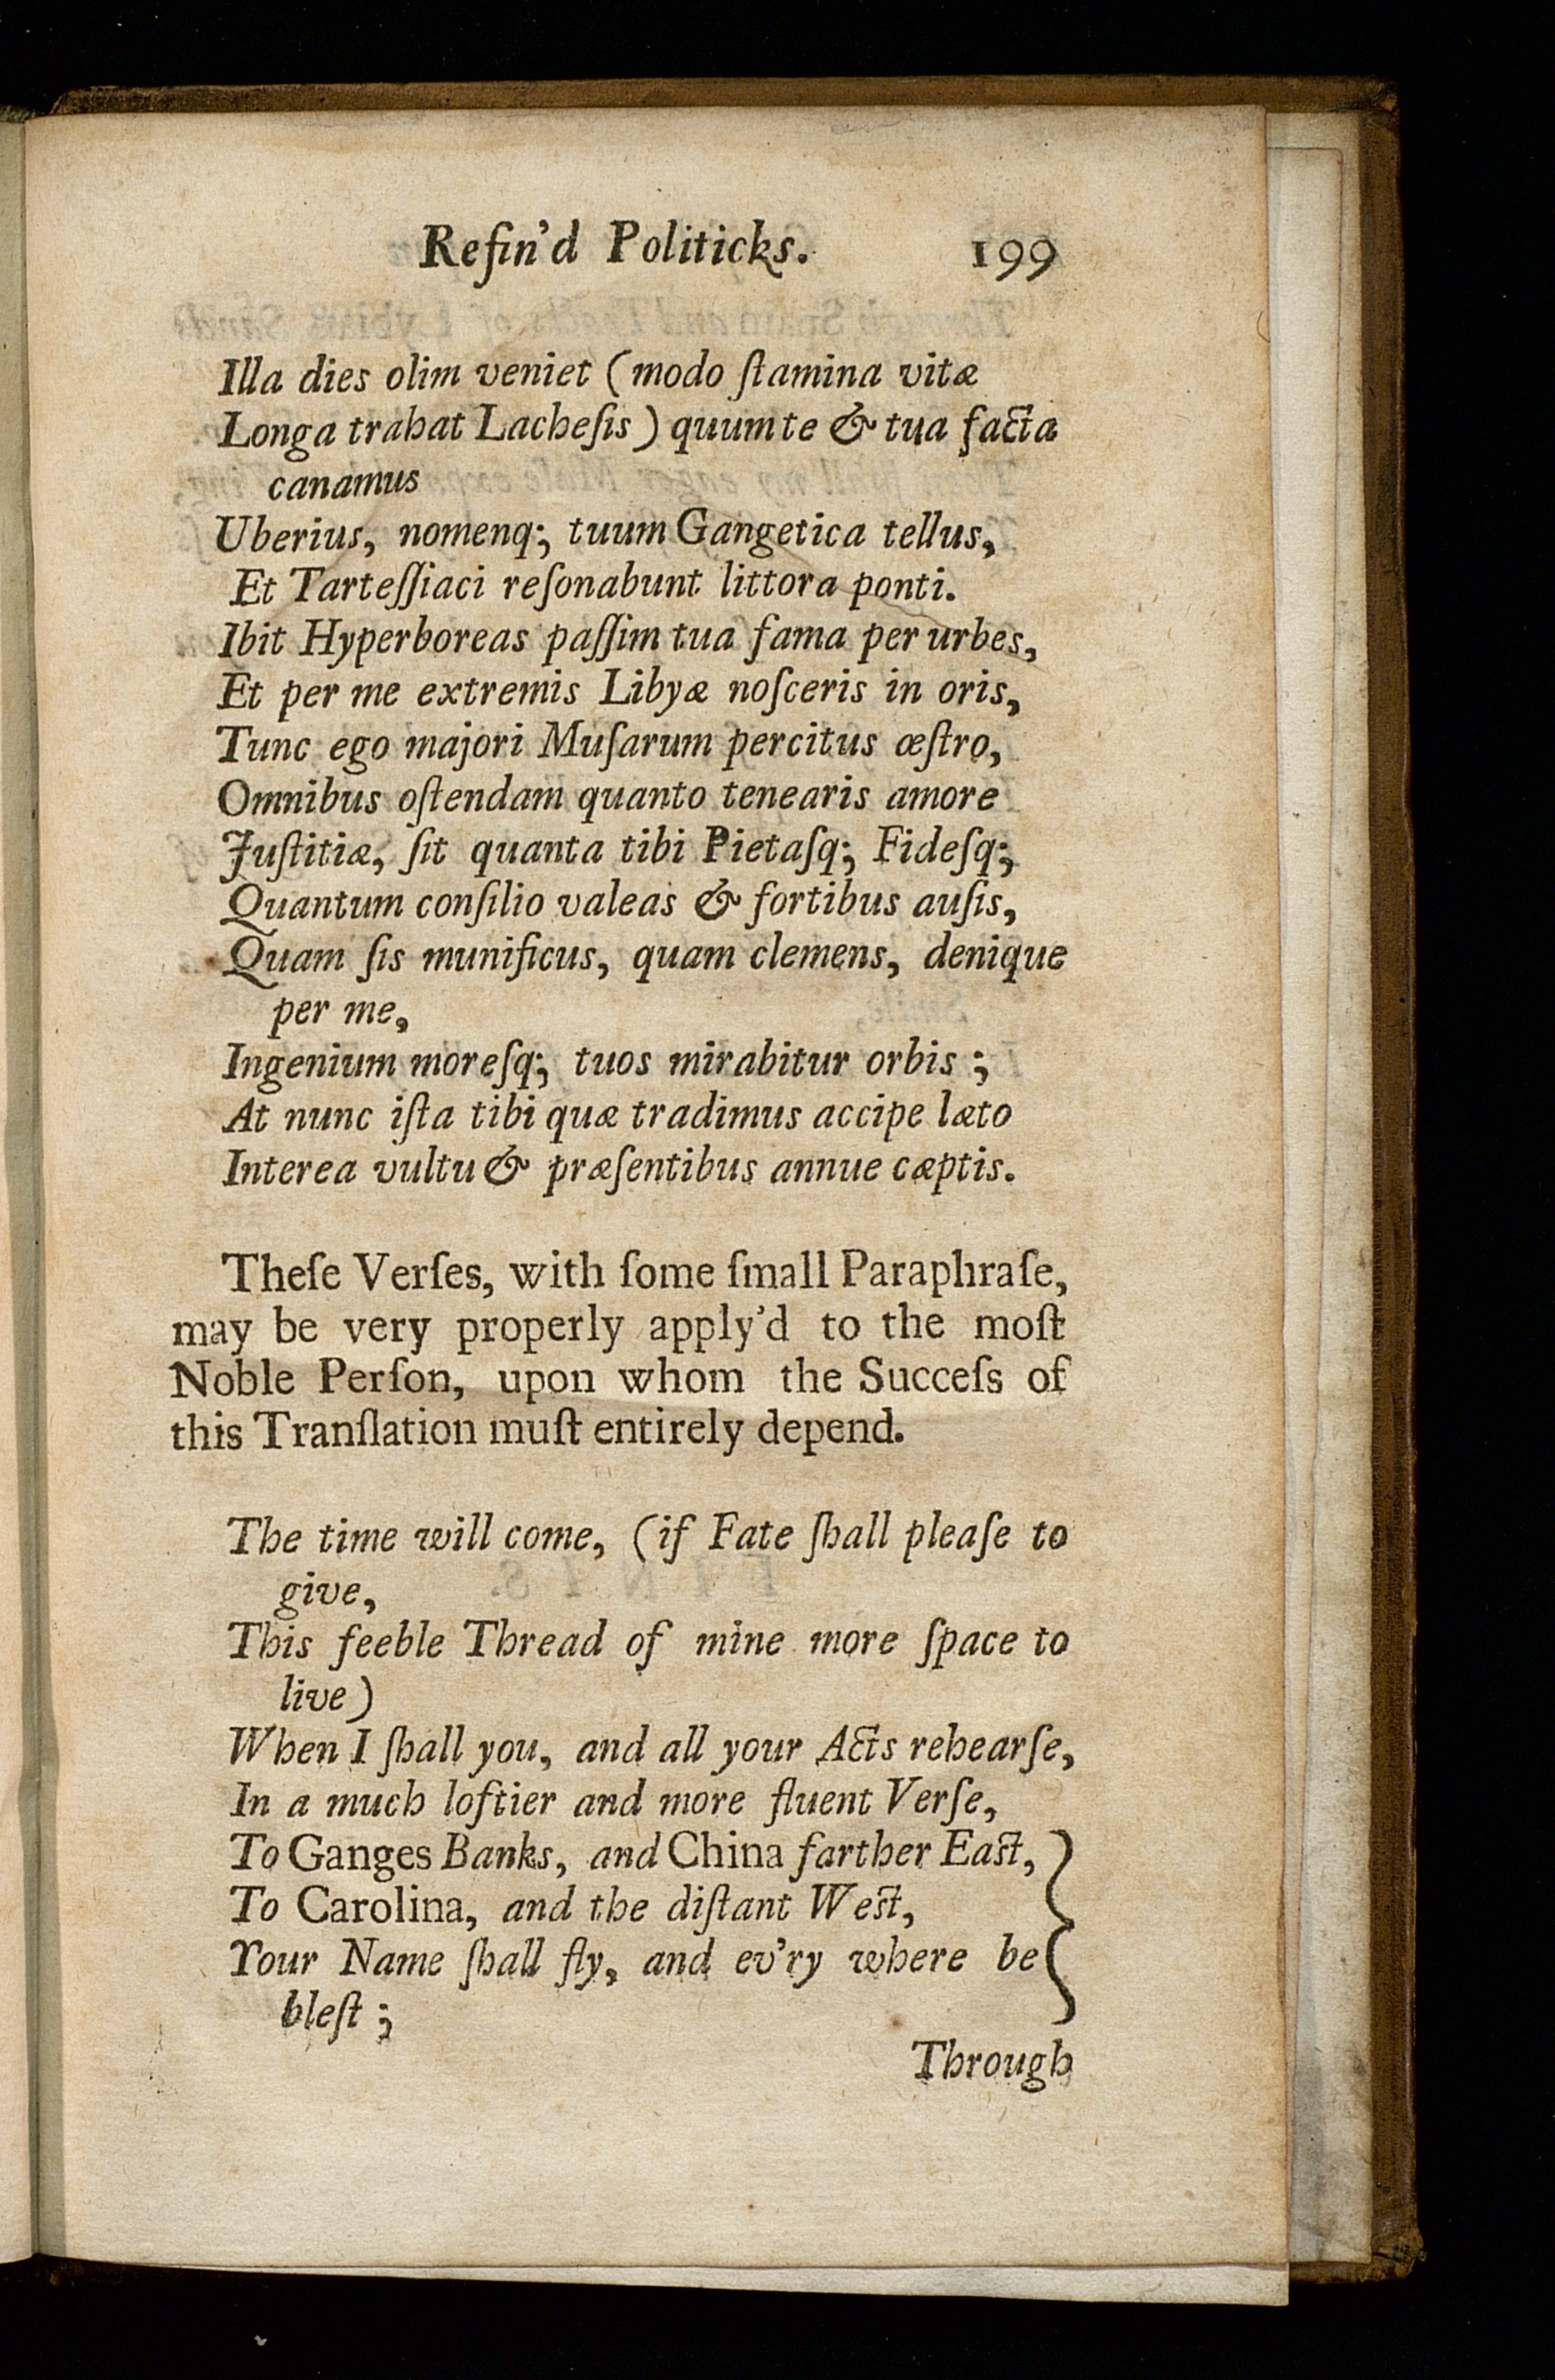 Refin'd Politicks. 199
Illa dies olim veniet (modo ſtamina vitæ
Longa trahat Lacheſis) quum te & tua facta
canamus
Uberius, nomenq; tuum Gangetica tellus,
Et Tarteſſiaci reſonabunt littora ponti.
Ibit Hyperboreas paſſim tua fama per urbes,
Et per me extremis Libyæ noſceris in oris,
Tunc ego majori Muſarum percitus œſtro,
Omnibus oſtendam quanto tenearis amore
Juſtitiæ, ſit quanta tibi Pietaſq; Fideſq;
Quantum conſilio valeas & fortibus auſis,
Quam ſis munificus, quam clemens, denique
per me,
Ingenium moreſq; tuos mirabitur orbis ;
At nunc iſta tibi quæ tradimus accipe læto
Interea vultu & præſentibus annue cæptis.
Theſe Verſes, with ſome ſmall Paraphraſe,
may be very properly apply'd to the moſt
Noble Perſon, upon whom the Succeſs of
this Tranſlation muſt entirely depend.
The time will come, (if Fate ſhall pleaſe to
give,
This feeble Thread of mine more ſpace to
live)
When I ſhall you, and all your Acts rehearſe,
In a much loftier and more fluent Verſe,
To Ganges Banks, and China farther Eaſt,
To Carolina, and the diſtant Weſt,
Your Name ſhall fly, and ev'ry where be
bleſt ;
Through